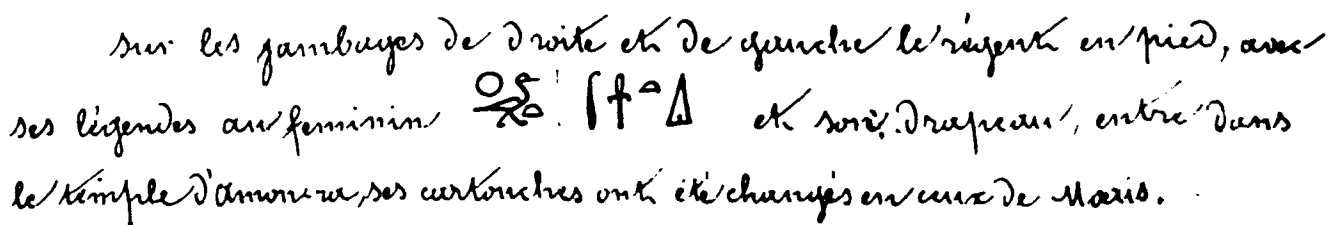 sur les jambages de droite et de gauche le régent en pied, avec
ses légendes au feminin 𓅭𓇳𓏏 𓋴𓋹𓏏𓇋 et son drapeau, entre dans
le temple d'amon-ra, ses cartouches ont été changés en ceux de Mœris.